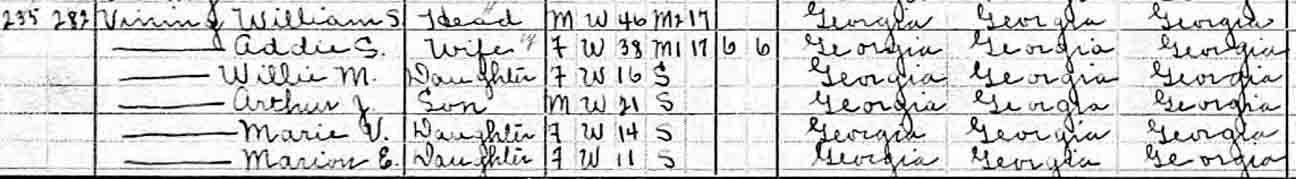 235 282 Vining William S. Head M W 46 M2 17 Georgia Georgia Georgia
Addie S. Wife F W 38 M1 17 6 6 Georgia Georgia Georgia
Willie M. Daughter F W 16 S Georgia Georgia Georgia
Arthur J. Son M W 21 S Georgia Georgia Georgia
Marie V. Daughter F W 14 S Georgia Georgia Georgia
Marion E. Daughter F W 11 S Georgia Georgia Georgia